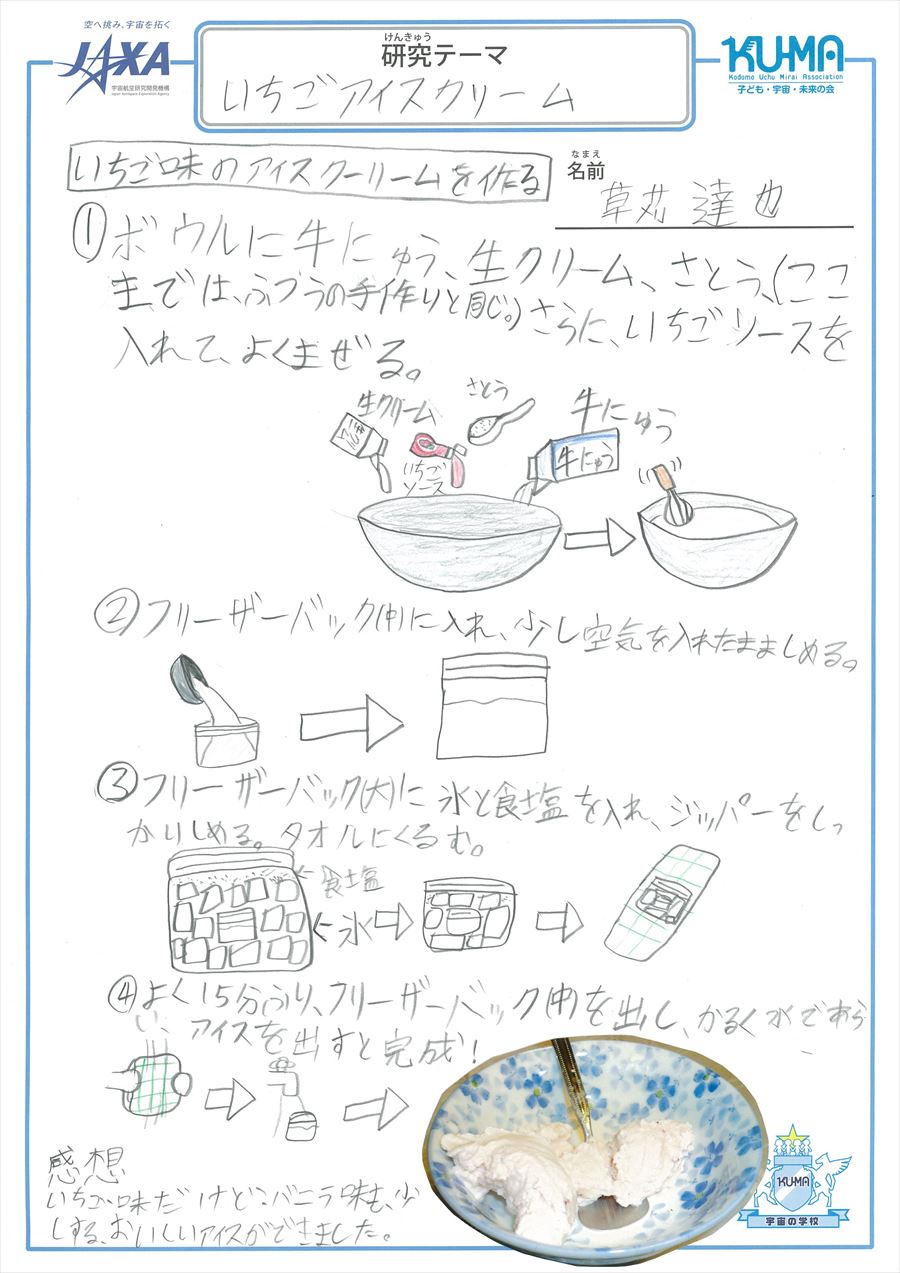 空へ挑み、宇宙を拓く
JAXA
宇宙航空研究開発機構
Japan Aerospace Exploration Agency
けんきゅう
研究テーマ
いちごアイスクリーム
KU-MA
Kodomo Uchu Mirai Association
子ども・宇宙・未来の会
いちご味のアイスクーリームを作る
なまえ
名前
達也
①ボウルに牛にゅう、生クリーム、さとう、(ここ
まではふつうの手作りと同じ。)さらに、いちごソースを
入れて、よくまぜる。
さとう
生クリーム
牛にゅう
いちご
ソース
牛にゅう
②フリーザーバック(中)に入れ、少し空気を入れたまましめる。
③フリーザーバック(大)に氷と食塩を入れ、ジッパーをしっ
かりしめる。タオルにくるむ。
食塩
氷
④よく15分ふり、フリーザーバック(中)を出し、かるく水であら
い、アイスを出すと完成!
感想
いちご味だけどバニラ味も、少
しする、おいしいアイスができました。
KU-MA
宇宙の学校